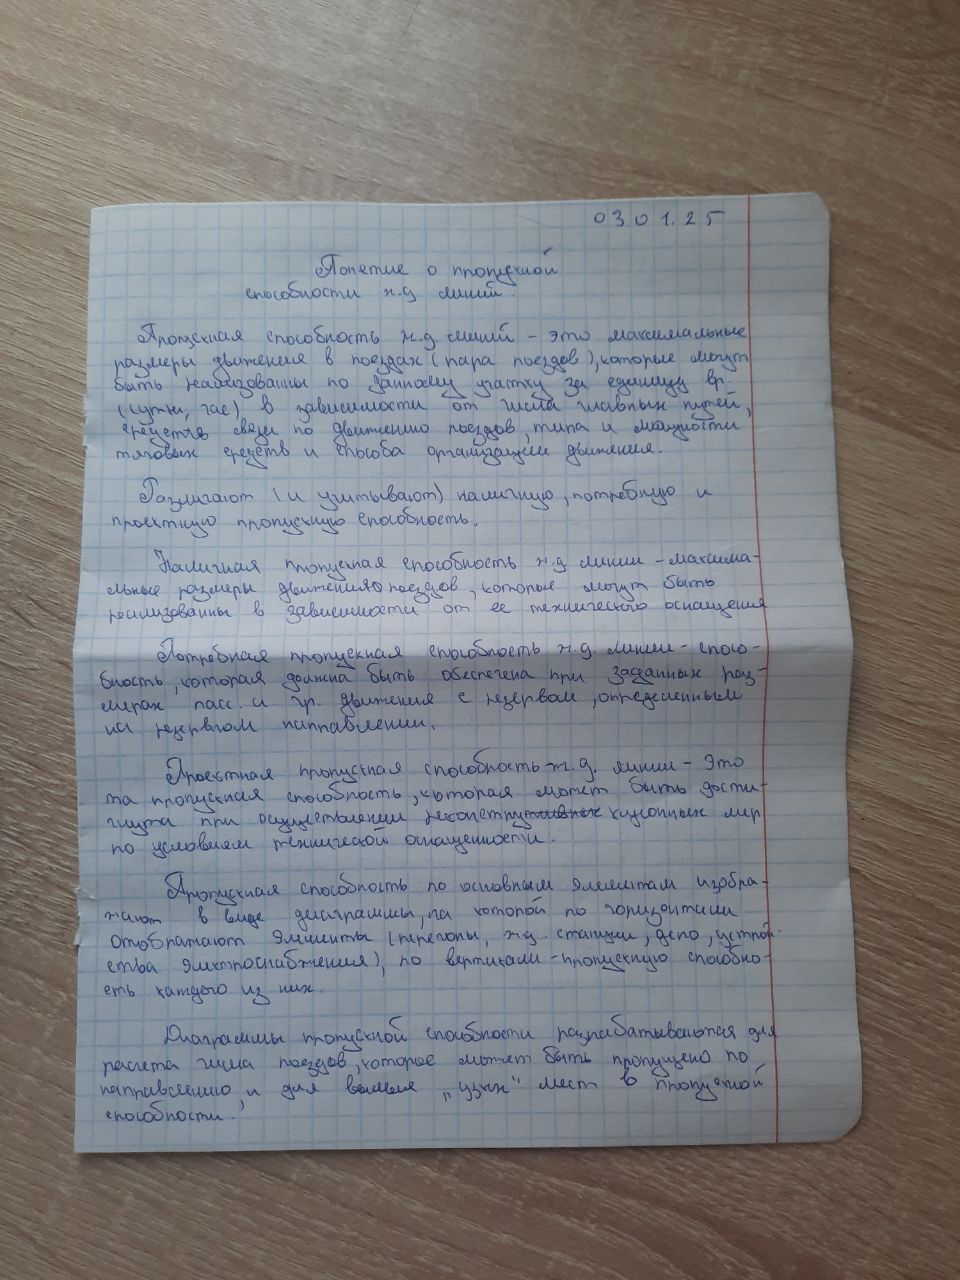 03 01.25
Понетие о пропускной
способности ж.д линий.
Пропускная способность ж.д. линий - это максимальные
размеры движения в поездах (пара поездов), которые могут
быть реализованны по данному участку за единицу вр.
(сутки, час), в зависимости от числа главных путей,
средств связи по движению поездов, типа и мощности
тяговых средств и способа организации движения.
Различают (и учитывают) наличную, потребную и
проектную пропускную способность.
Наличная пропускная способность ж.д линии - максима-
льные размеры движения поездов, которые могут быть
реализованны в зависимости от ее технического оснащения
Потребная пропускная способность ж.д. линии - спосо-
бность, которая должна быть обеспечена при заданных раз-
мерах пасс. и гр. движения с резервом, определенным
на резервом направлении.
Проектная пропускная способность ж.д. линии - это
та пропускная способность, которая может быть дости-
гнута при осуществлении реконструкционных мер
по условиям технической оснащенности.
Пропускная способность по основным элементам изобра-
жают в виде диаграммы, на которой по горизонтали
отображают элементы (перегоны, ж.д. станции, депо, устрой-
ства электроснабжения), по вертикали - пропускную способно-
сть каждого из них.
Диаграммы пропускной способности разрабатываются для
расчета числа поездов, которое может быть пропущено по
направлению, и для "узких" мест в пропускной
способности.